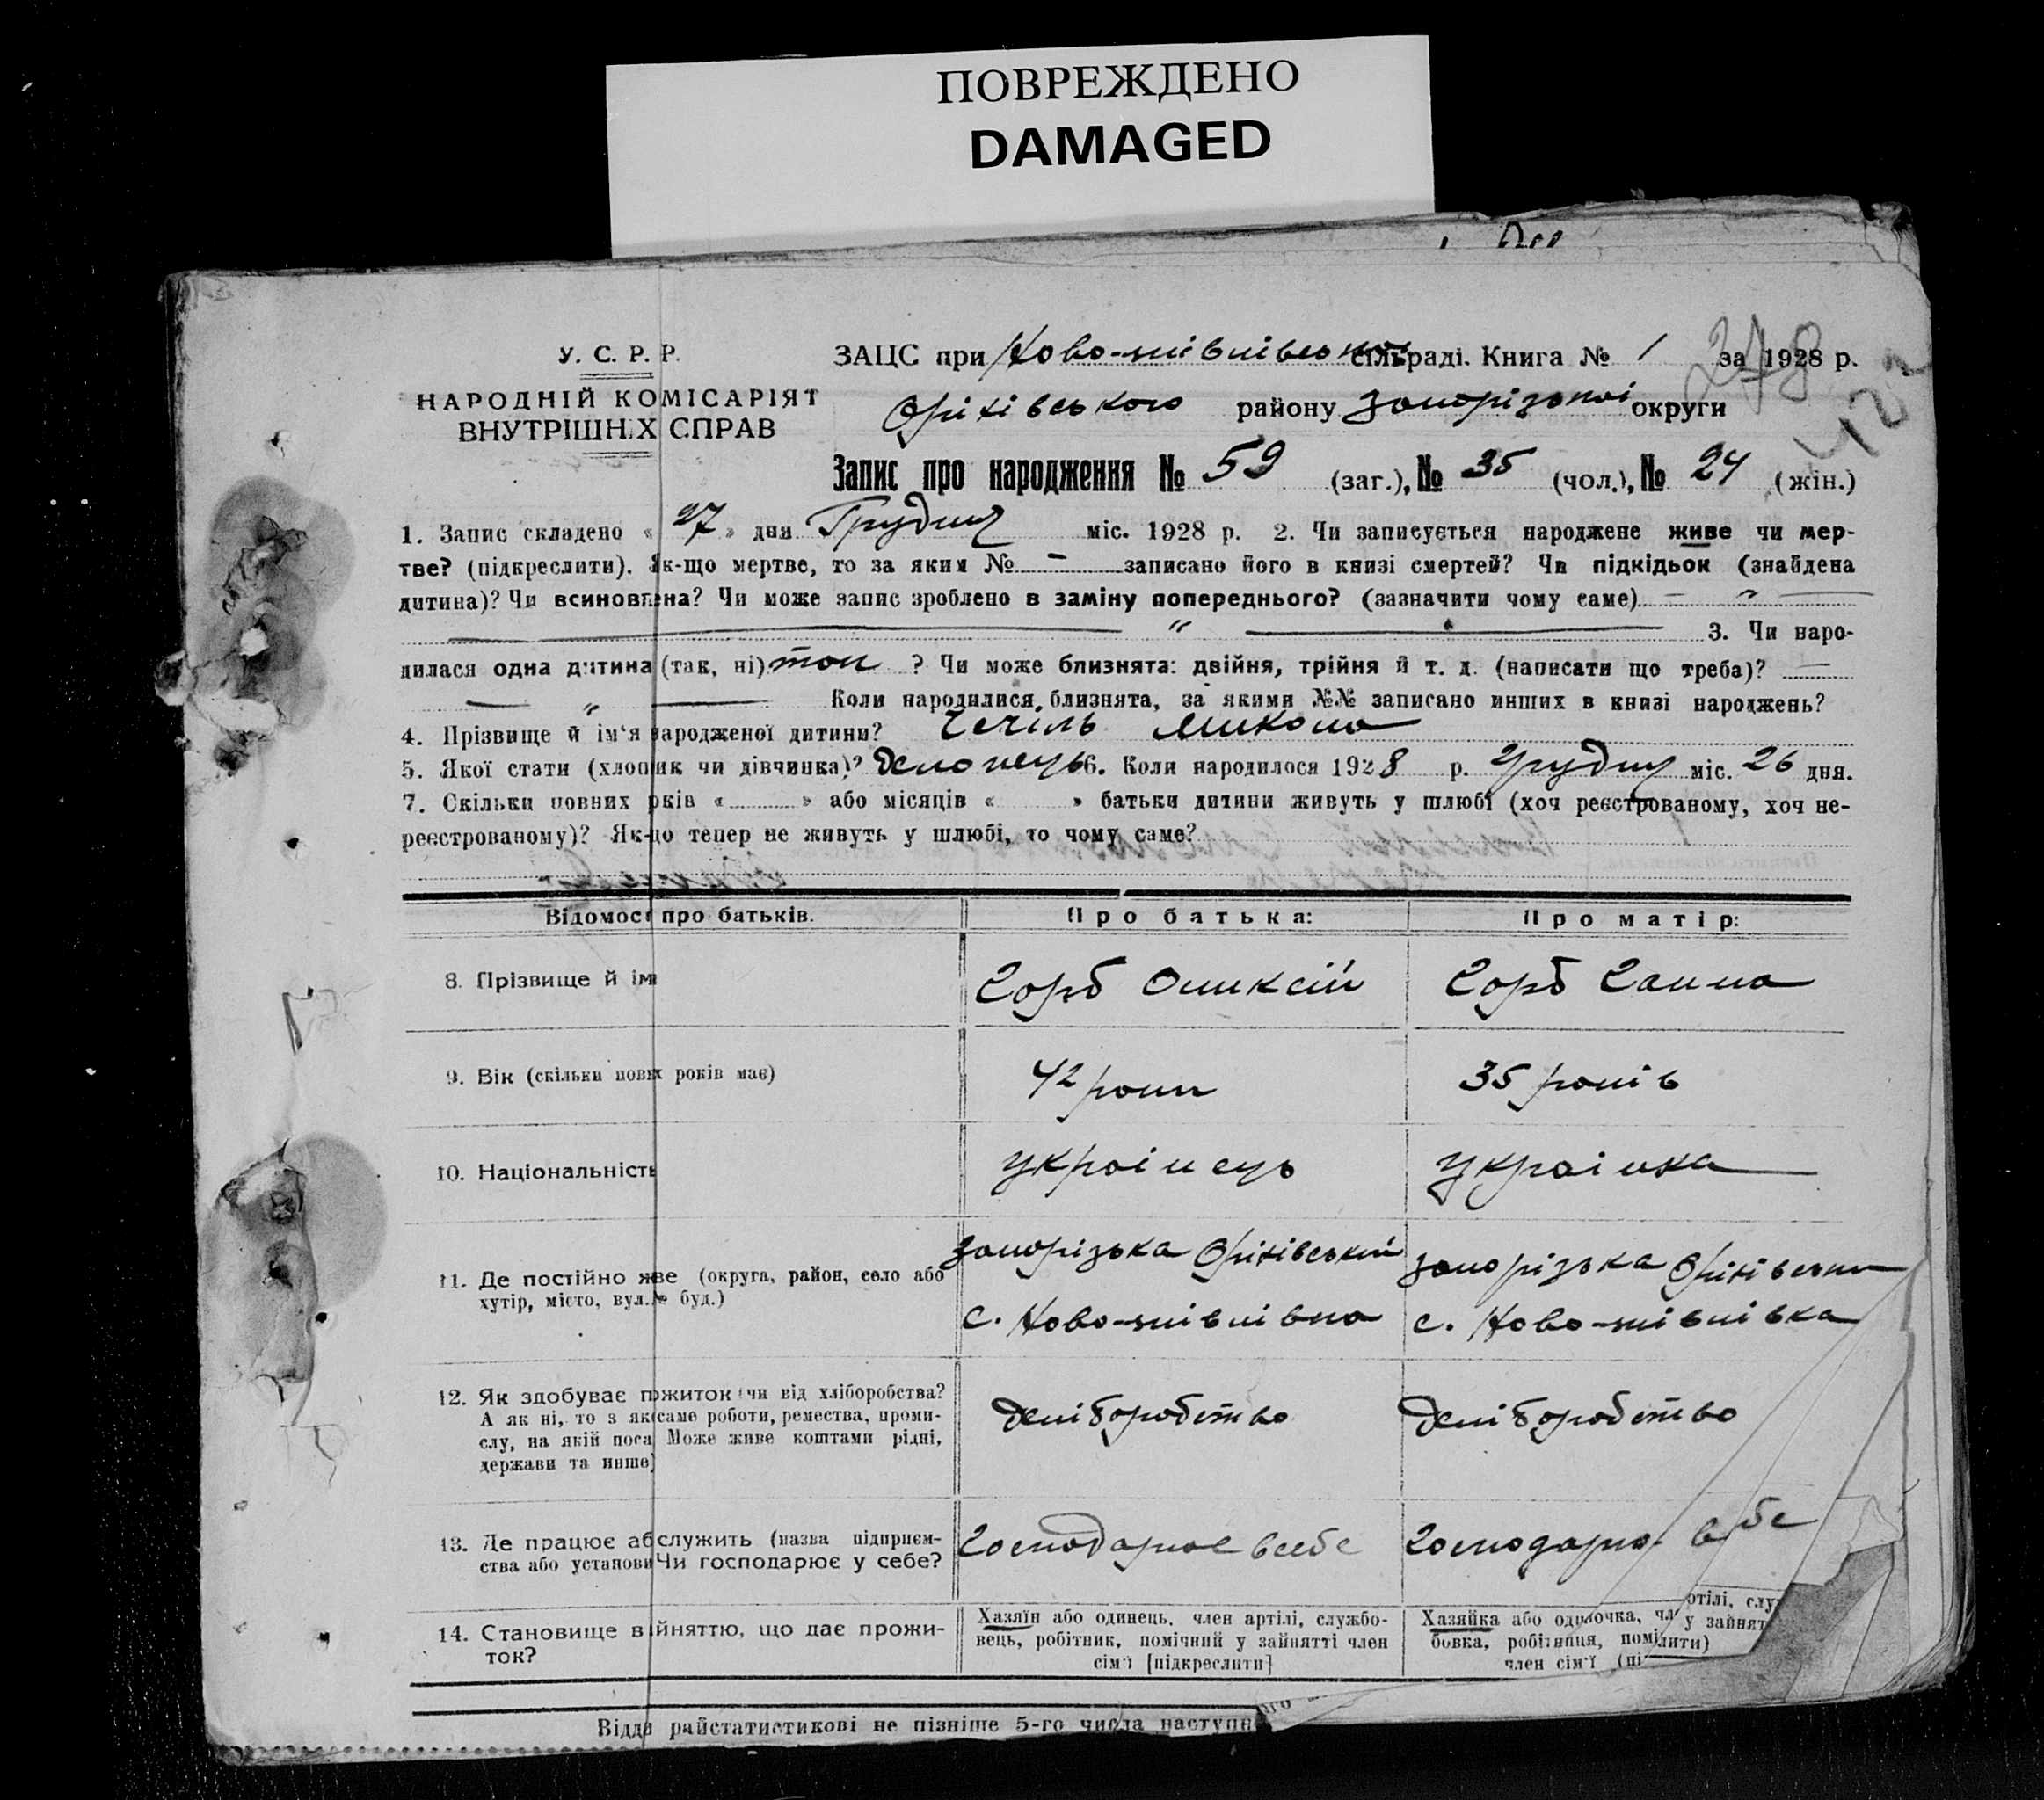 ПОВРЕЖДЕНО
DAMAGED
У. С. Р. Р.
НАРОДНІЙ КОМІСАРІЯТ
ВНУТРІШНІХ СПРАВ
ЗАЦС при Ново- сільраді. Книга № 1 за 1928 р.
278
422
Оріхівського району Запорізької округи
Запис про народження № 59 (заг.), № 35 (чол.), № 24 (жін.)
1. Запис складено « 27 » дня Грудня міс. 1928 р. 2. Чи записується народжене живе чи мер-
тве? (підкреслити). Як-що мертве, то за яким № — записано його в книзі смертей? Чи підкідьок (знайдена
дитина)? Чи всиновлена? Чи може запис зроблено в заміну попереднього? (зазначити чому саме) — " —
— " — 3. Чи наро-
дилася одна дитина (так, ні) так ? Чи може близнята: двійня, трійня й т. д. (написати що треба)? —
— " — Коли народилися близнята, за якими №№ записано инших в книзі народжень?
4. Прізвище й ім'я народженої дитини? Микола
5. Якої стати (хлопчик чи дівчинка)? Хлопець 6. Коли народилося 1928 р. Грудня міс. 26 дня.
7. Скільки повних років « » або місяців « » батьки дитини живуть у шлюбі (хоч реєстрованому, хоч не-
реєстрованому)? Як-що тепер не живуть у шлюбі, то чому саме?
Відомості про батьків. Про батька: Про матір:
8. Прізвище й імя Горб Оликсій Горб Ганна
9. Вік (скільки повних років має) 42 роки 35 років
10. Національність українець українка
11. Де постійно живе (округа, район, село або Запорізька Оріхівський Запорізька Оріхівський
хутір, місто, вул. № буд.) с. Ново- с. Ново-
12. Як здобуває пожиток (чи від хліборобства? Хліборобство Хліборобство
А як ні, то з якої саме роботи, ремества, проми-
слу, на якій посаді Може живе коштами рідні,
держави та инше)
13. Де працює або служить (назва підприєм- Господарює в себе Господарює в себе
ства або установи Чи господарює у себе?
14. Становище в зайняттю, що дає прожи-
ток?
Хазяїн або одинець, член артілі, службо-
вець, робітник, помічний у зайнятті член
сім'ї [підкреслити]
Хазяйка або одиночка, чл артілі, слу
бовка, робітниця, помі у зайнят
член сім'ї (пі лити)
Відда райстатистикові не пізніше 5-го числа наступн ого